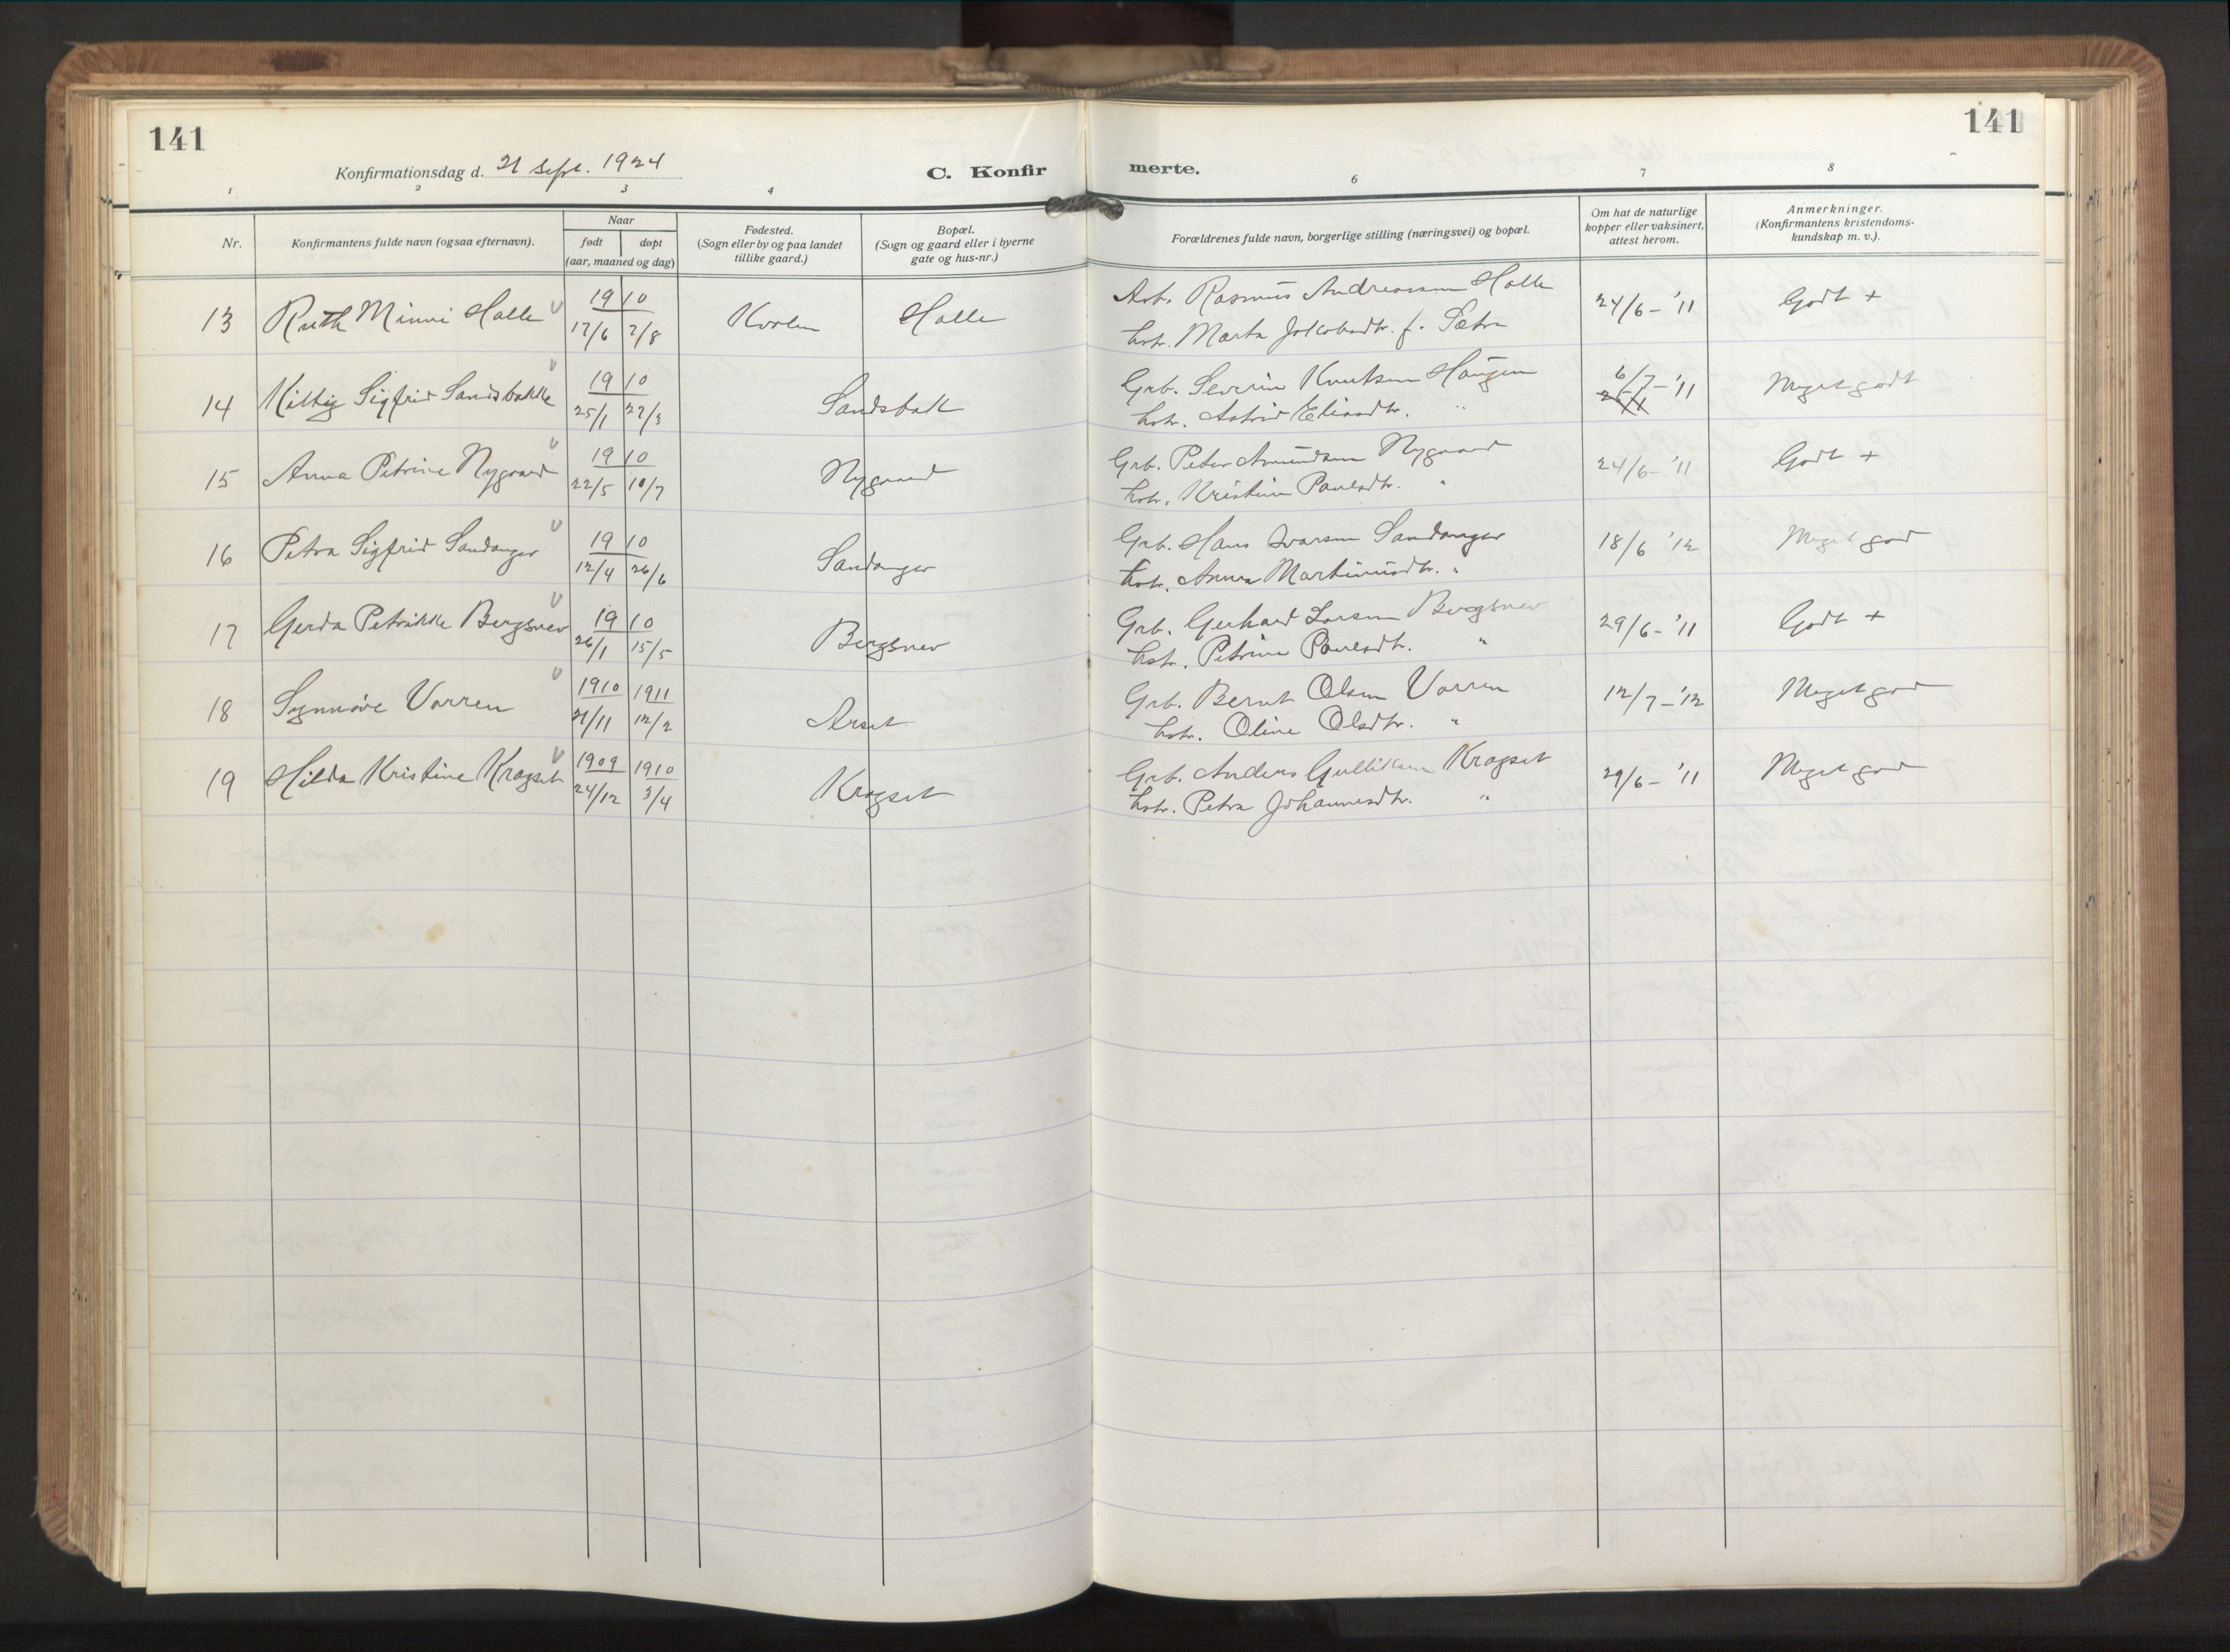 141
141
Konfirmationsdag d. 21 sept. 1924
C. Konfir
merte.
1
2
3
4
6
7
8
Nr.
Konfirmantens fulde navn (ogsaa efternavn).
Naar
født
døpt
(aar, maaned og dag)
Fødested.
(Sogn eller by og paa landet
tillike gaard.)
Bopæl.
(Sogn og gaard eller i byerne
gate og hus-nr.)
Forældrenes fulde navn, borgerlige stilling (næringsvei) og bopæl.
Om hat de naturlige
kopper eller vaksinert,
attest herom.
Anmerkninger.
(Konfirmantens kristendoms-
kundskap m. v.).
13 Ruth Minni Halle 1910 17/6 7/8 Halle
Arb. Rasmus Andreassen Halle
hstr. Marta Jakobsdtr. f. Sætre
24/6-'11 Godt +
14 Sigfrid Sandsbakk 1910 25/1 27/3 Sandsbakk
Grb. Severin Knutsen Haugen
hstr. Astrid Eliasdtr. "
6/7-'11 Meget godt
15 Anna Petrine Nygaard 1910 22/5 10/7 Nygaard
Grb. Peter Amundsen Nygaard
hstr. Kristine Paulsdtr. "
24/6-'11 Godt +
16 Petra Sigfrid Sandanger 1910 12/4 26/6 Sandanger
Grb. Hans Ivarsen Sandanger
hstr. Anna Martinusdtr. "
18/6 '12 Meget god
17 Gerda Petrikke Bergsnev 1910 26/1 15/5 Bergsnev
Grb. Gerhard Larsen Bergsnev
hstr. Petrine Paulsdtr. "
29/6-'11 Godt +
18 Synnøve Vorren 1910 21/11 1911 12/2 Arset
Grb. Bernt Olsen Vorren
hstr. Oline Olsdtr. "
12/7-'12 Meget god
19 Hilda Kristine Kragset 1909 24/12 1910 3/4 Kragset
Grb. Anders Gulliksen Kragset
hstr. Petra Johannesdtr. "
29/6-'11 Meget god